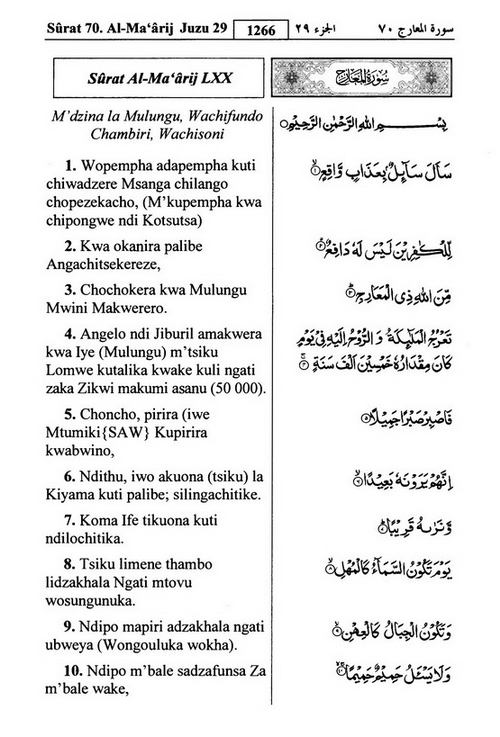 Sûrat 70. Al-Ma‘ârij Juzu 29 1266 الجزء ٢٩ سورة المعارج ٧٠
Sûrat Al-Ma‘ârij LXX
سُوْرَةُ الْمَعَارِج
M’dzina la Mulungu, Wachifundo
Chambiri, Wachisoni
بِسْمِ اللهِ الرَّحْمٰنِ الرَّحِيْمِ
1. Wopempha adapempha kuti
chiwadzere Msanga chilango
chopezekacho, (M’kupempha kwa
chipongwe ndi Kotsutsa)
سَاَلَ سَآئِلٌۢ بِعَذَابٍ وَّاقِعٍ ۙ۝١
2. Kwa okanira palibe
Angachitsekereze,
لِّلْكٰفِرِيْنَ لَيْسَ لَهٗ دَافِعٌ ۙ۝٢
3. Chochokera kwa Mulungu
Mwini Makwerero.
مِّنَ اللهِ ذِى الْمَعَارِجِ ؕ۝٣
4. Angelo ndi Jiburil amakwera
kwa Iye (Mulungu) m’tsiku
Lomwe kutalika kwake kuli ngati
zaka Zikwi makumi asanu (50 000).
تَعْرُجُ الْمَلٰٓئِكَةُ وَالرُّوْحُ اِلَيْهِ فِىْ يَوْمٍ
كَانَ مِقْدَارُهٗ خَمْسِيْنَ اَلْفَ سَنَةٍ ۚ۝٤
5. Choncho, pirira (iwe
Mtumiki{SAW} Kupirira
kwabwino,
فَاصْبِرْ صَبْرًا جَمِيْلًا ۝٥
6. Ndithu, iwo akuona (tsiku) la
Kiyama kuti palibe; silingachitike.
اِنَّهُمْ يَرَوْنَهٗ بَعِيْدًا ۙ۝٦
7. Koma Ife tikuona kuti
ndilochitika.
وَّنَرٰىهُ قَرِيْبًا ؕ۝٧
8. Tsiku limene thambo
lidzakhala Ngati mtovu
wosungunuka.
يَوْمَ تَكُوْنُ السَّمَآءُ كَالْمُهْلِ ۙ۝٨
9. Ndipo mapiri adzakhala ngati
ubweya (Wongouluka wokha).
وَتَكُوْنُ الْجِبَالُ كَالْعِهْنِ ۙ۝٩
10. Ndipo m’bale sadzafunsa Za
m’bale wake,
وَلَا يَسْـَٔلُ حَمِيْمٌ حَمِيْمًا ۚۖ۝١٠